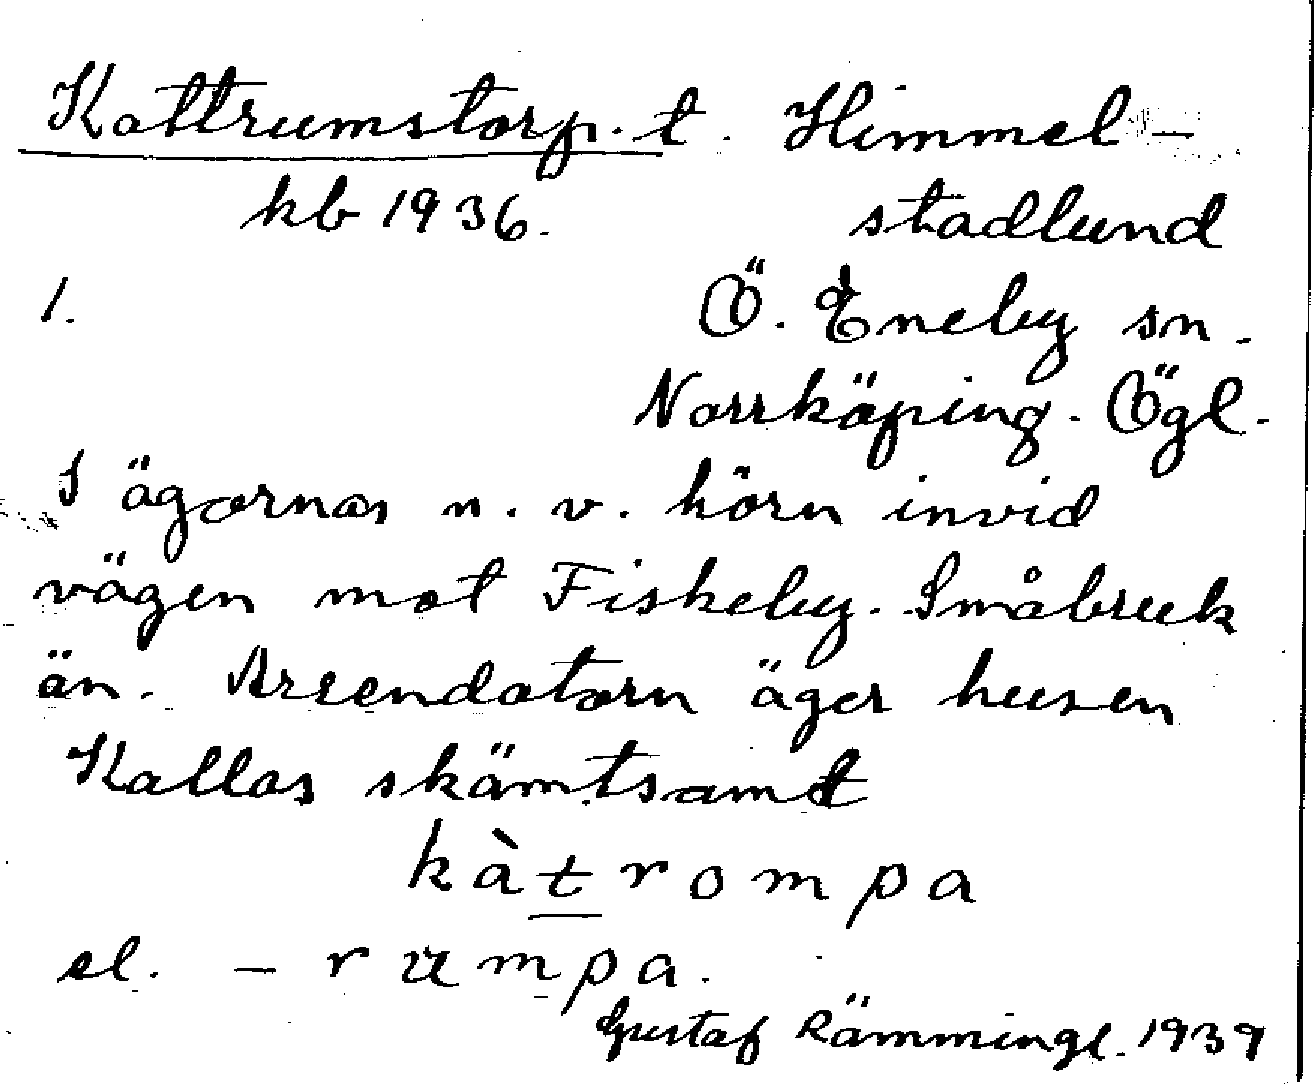 Kattrumstorp. t. Himmel-
kb 1936. stadlund
1. Ö. Eneby sn.
Norrköping. Ögl.
I ägornas n. v. hörn invid
vägen mot Fiskeby. Småbruk
än. Arrendatorn äger husen
Kallas skämtsamt
kàtrompa
el. - rumpa.
Gustaf Rämmingl. 1939